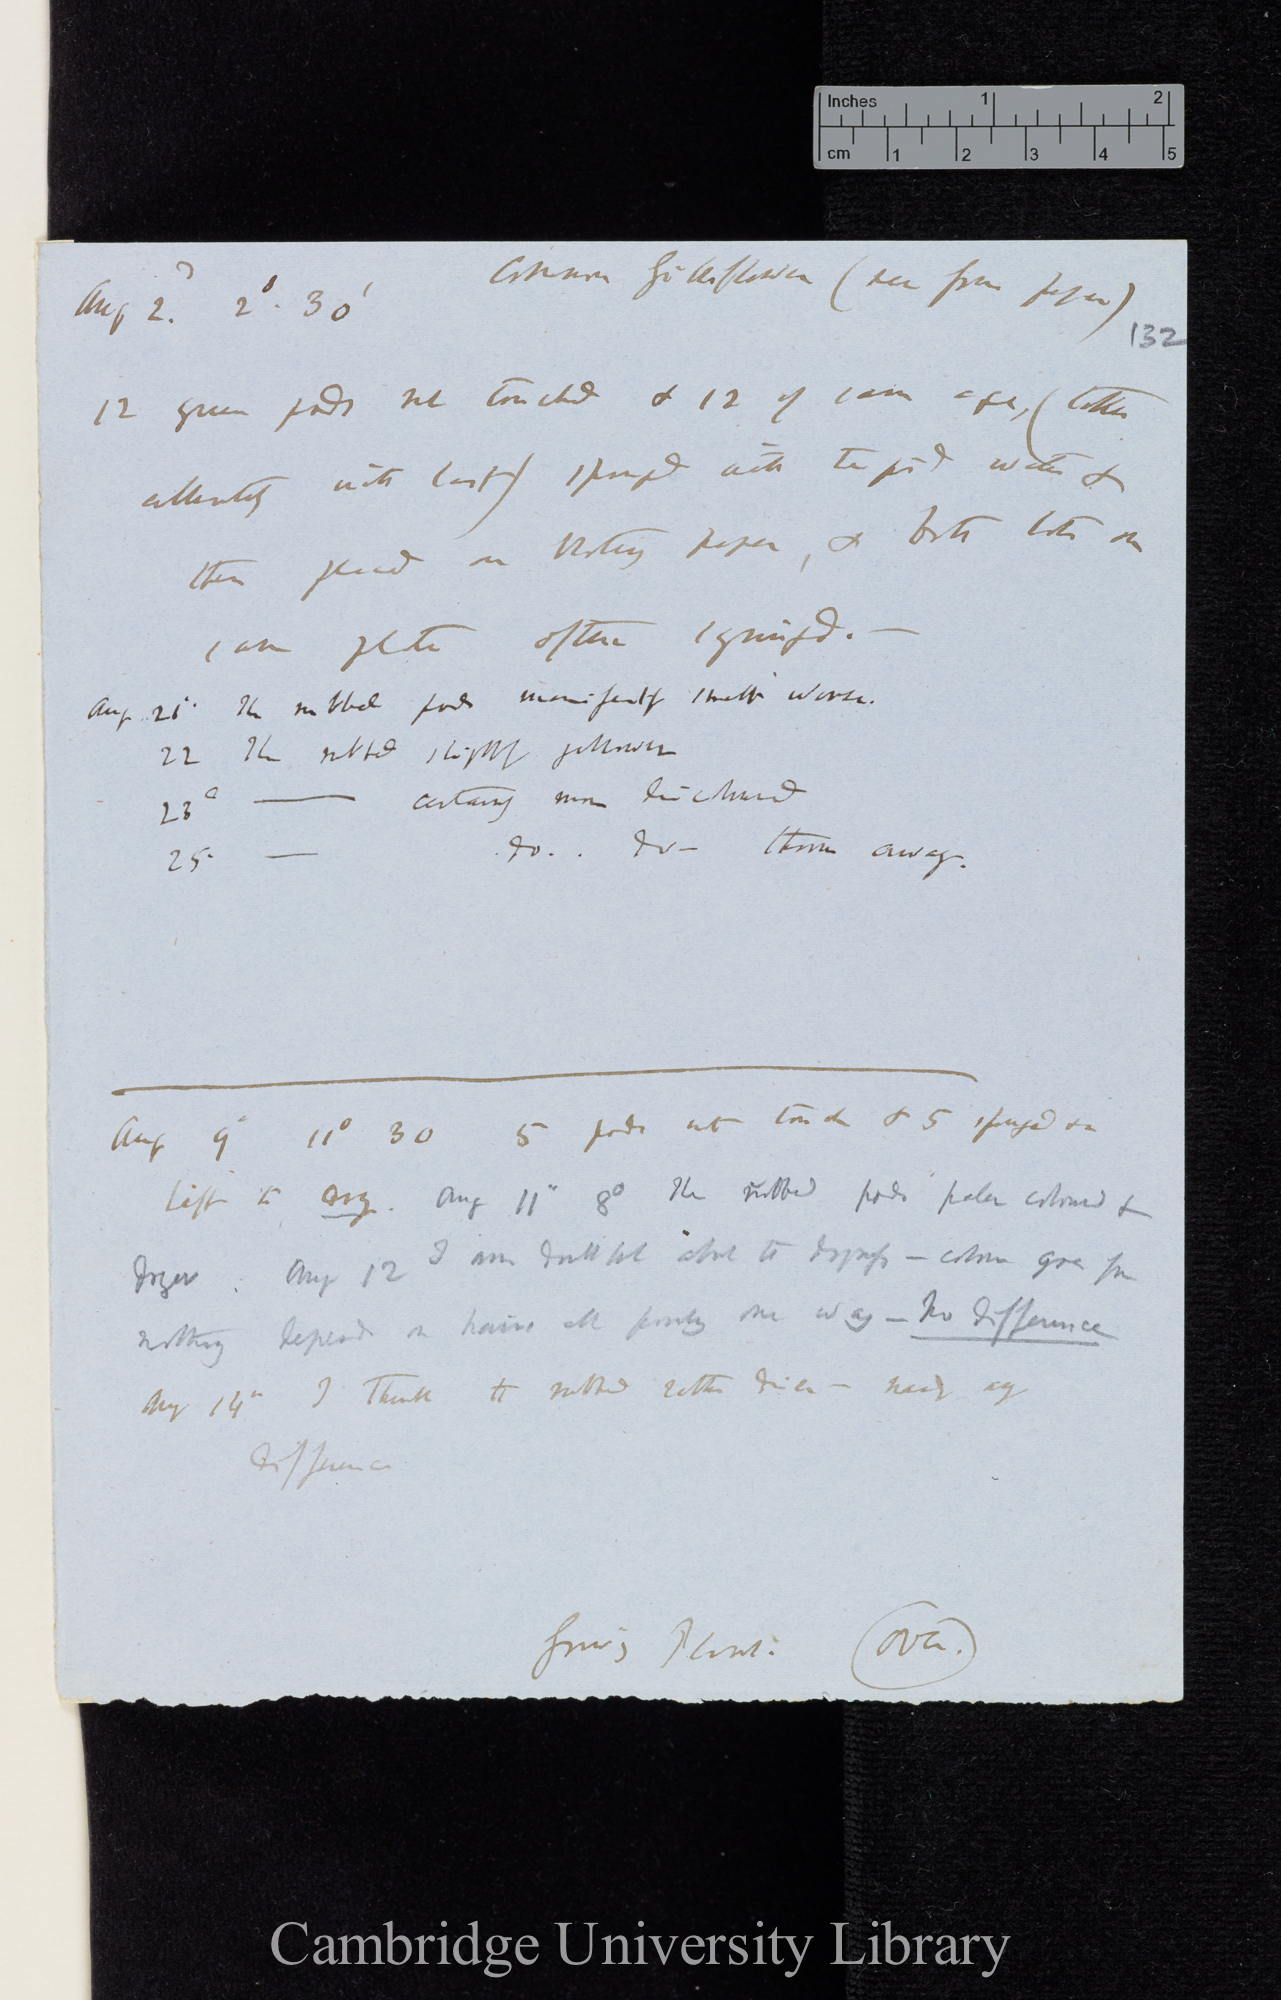 Inches 1 2
cm 1 2 3 4 5
Common Gillyflower (see from paper)
Aug 2. 2°. 30'
132
12 green pods not touched & 12 of same age, (taken
alternately with last) sponged with tepid water &
then placed on blotting paper, & both lots on
same plate often syringed. —
Aug 21 The rubbed pods manifestly smell worse.
22 The rubbed slightly yellower
23 — certainly more discoloured
25 — do.. do — thrown away.
Aug 9 11° 30 5 pods not touched & 5 sponged &
left to dry. Aug 11 8° The rubbed pods paler coloured &
dryer. Aug 12 I am doubtful about the dryness — colour goes for
nothing depends on hairs all pointing one way — No difference
Aug 14 I think the rubbed rather drier — hardly any
difference
Plants. (Over.)
Cambridge University Library